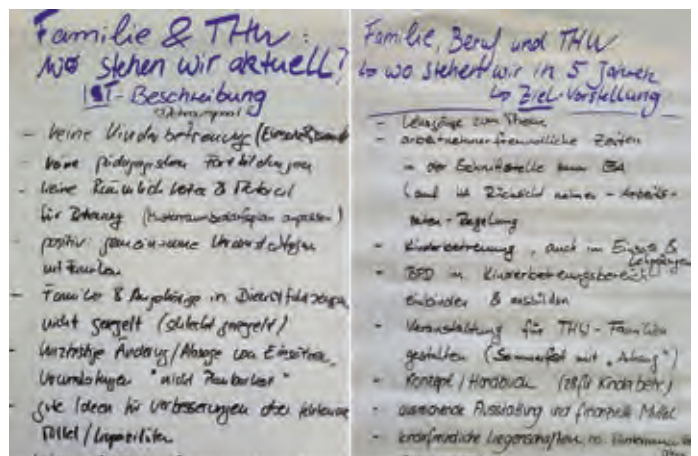 Familie & THW:
wo stehen wir aktuell?
IST-Beschreibung
- keine Kinderbetreuung (Einsatz &
- keine pädagogischen Fortbildungen
- keine Räumlichkeiten & Material
für Betreuung (Musterraumbedarfsplan anpassen)
- positiv: gemeinsame Veranstaltungen
mit Familien
- Familien & Angehörige in Dienstfahrzeugen
nicht geregelt (schlecht geregelt)
- kurzfristige Änderung/Absage von Einsätzen,
Veranstaltungen "nicht Planbarkeit"
- gute Ideen für Verbesserungen aber fehlende
Mittel/Kapazitäten
Familie, Beruf und THW
↳ wo stehen wir in 5 Jahren
↳ Ziel-Vorstellung
- Lehrgänge zum Thema
- arbeitnehmerfreundliche Zeiten
in der Schnittstelle zum
(auf Rücksicht nehmen - Arbeits-
zeiten-Regelung
- Kinderbetreuung, auch im Einsatz &
Lehrgängen
- BFD in Kinderbetreuungsbereich
einbinden & ausbilden
- Veranstaltung für THW-Familien
gestalten (Sommerfest mit "Anhang")
- Konzept/Handbuch (für Kinderbetr.)
- ausreichende Ausstattung und finanzielle Mittel
- kinderfreundliche Liegenschaften,